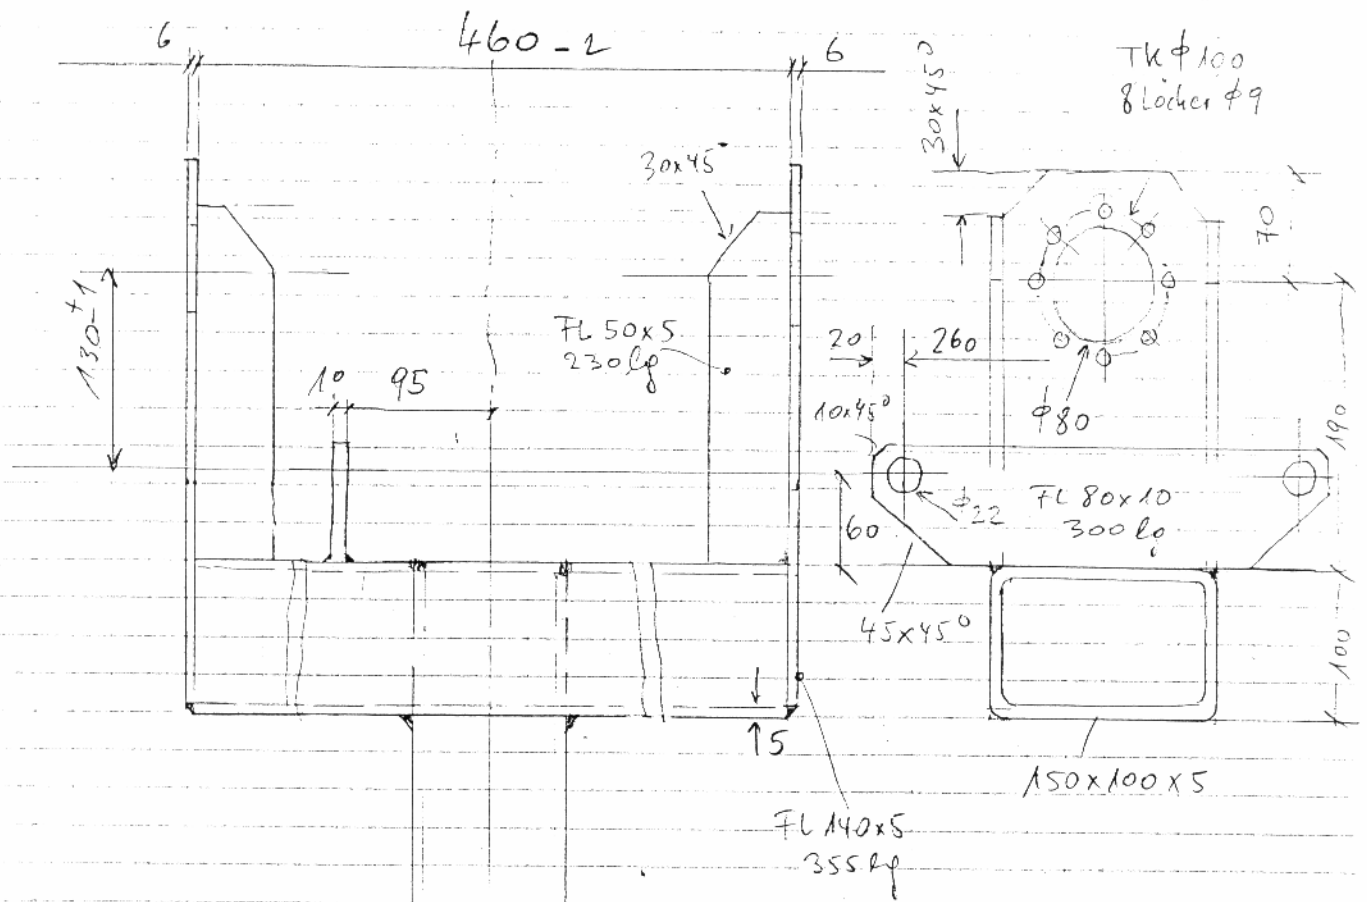 6
460-1
6
TK ϕ100
8 Löcher ϕ9
30x45°
30x45°
70
130 +-1
FL 50x5
230 lg
20
260
10
95
10x45°
ϕ80
190
60
ϕ22
FL 80x10
300 lg
45x45°
100
5
150x100x5
FL 140x5
355 lg